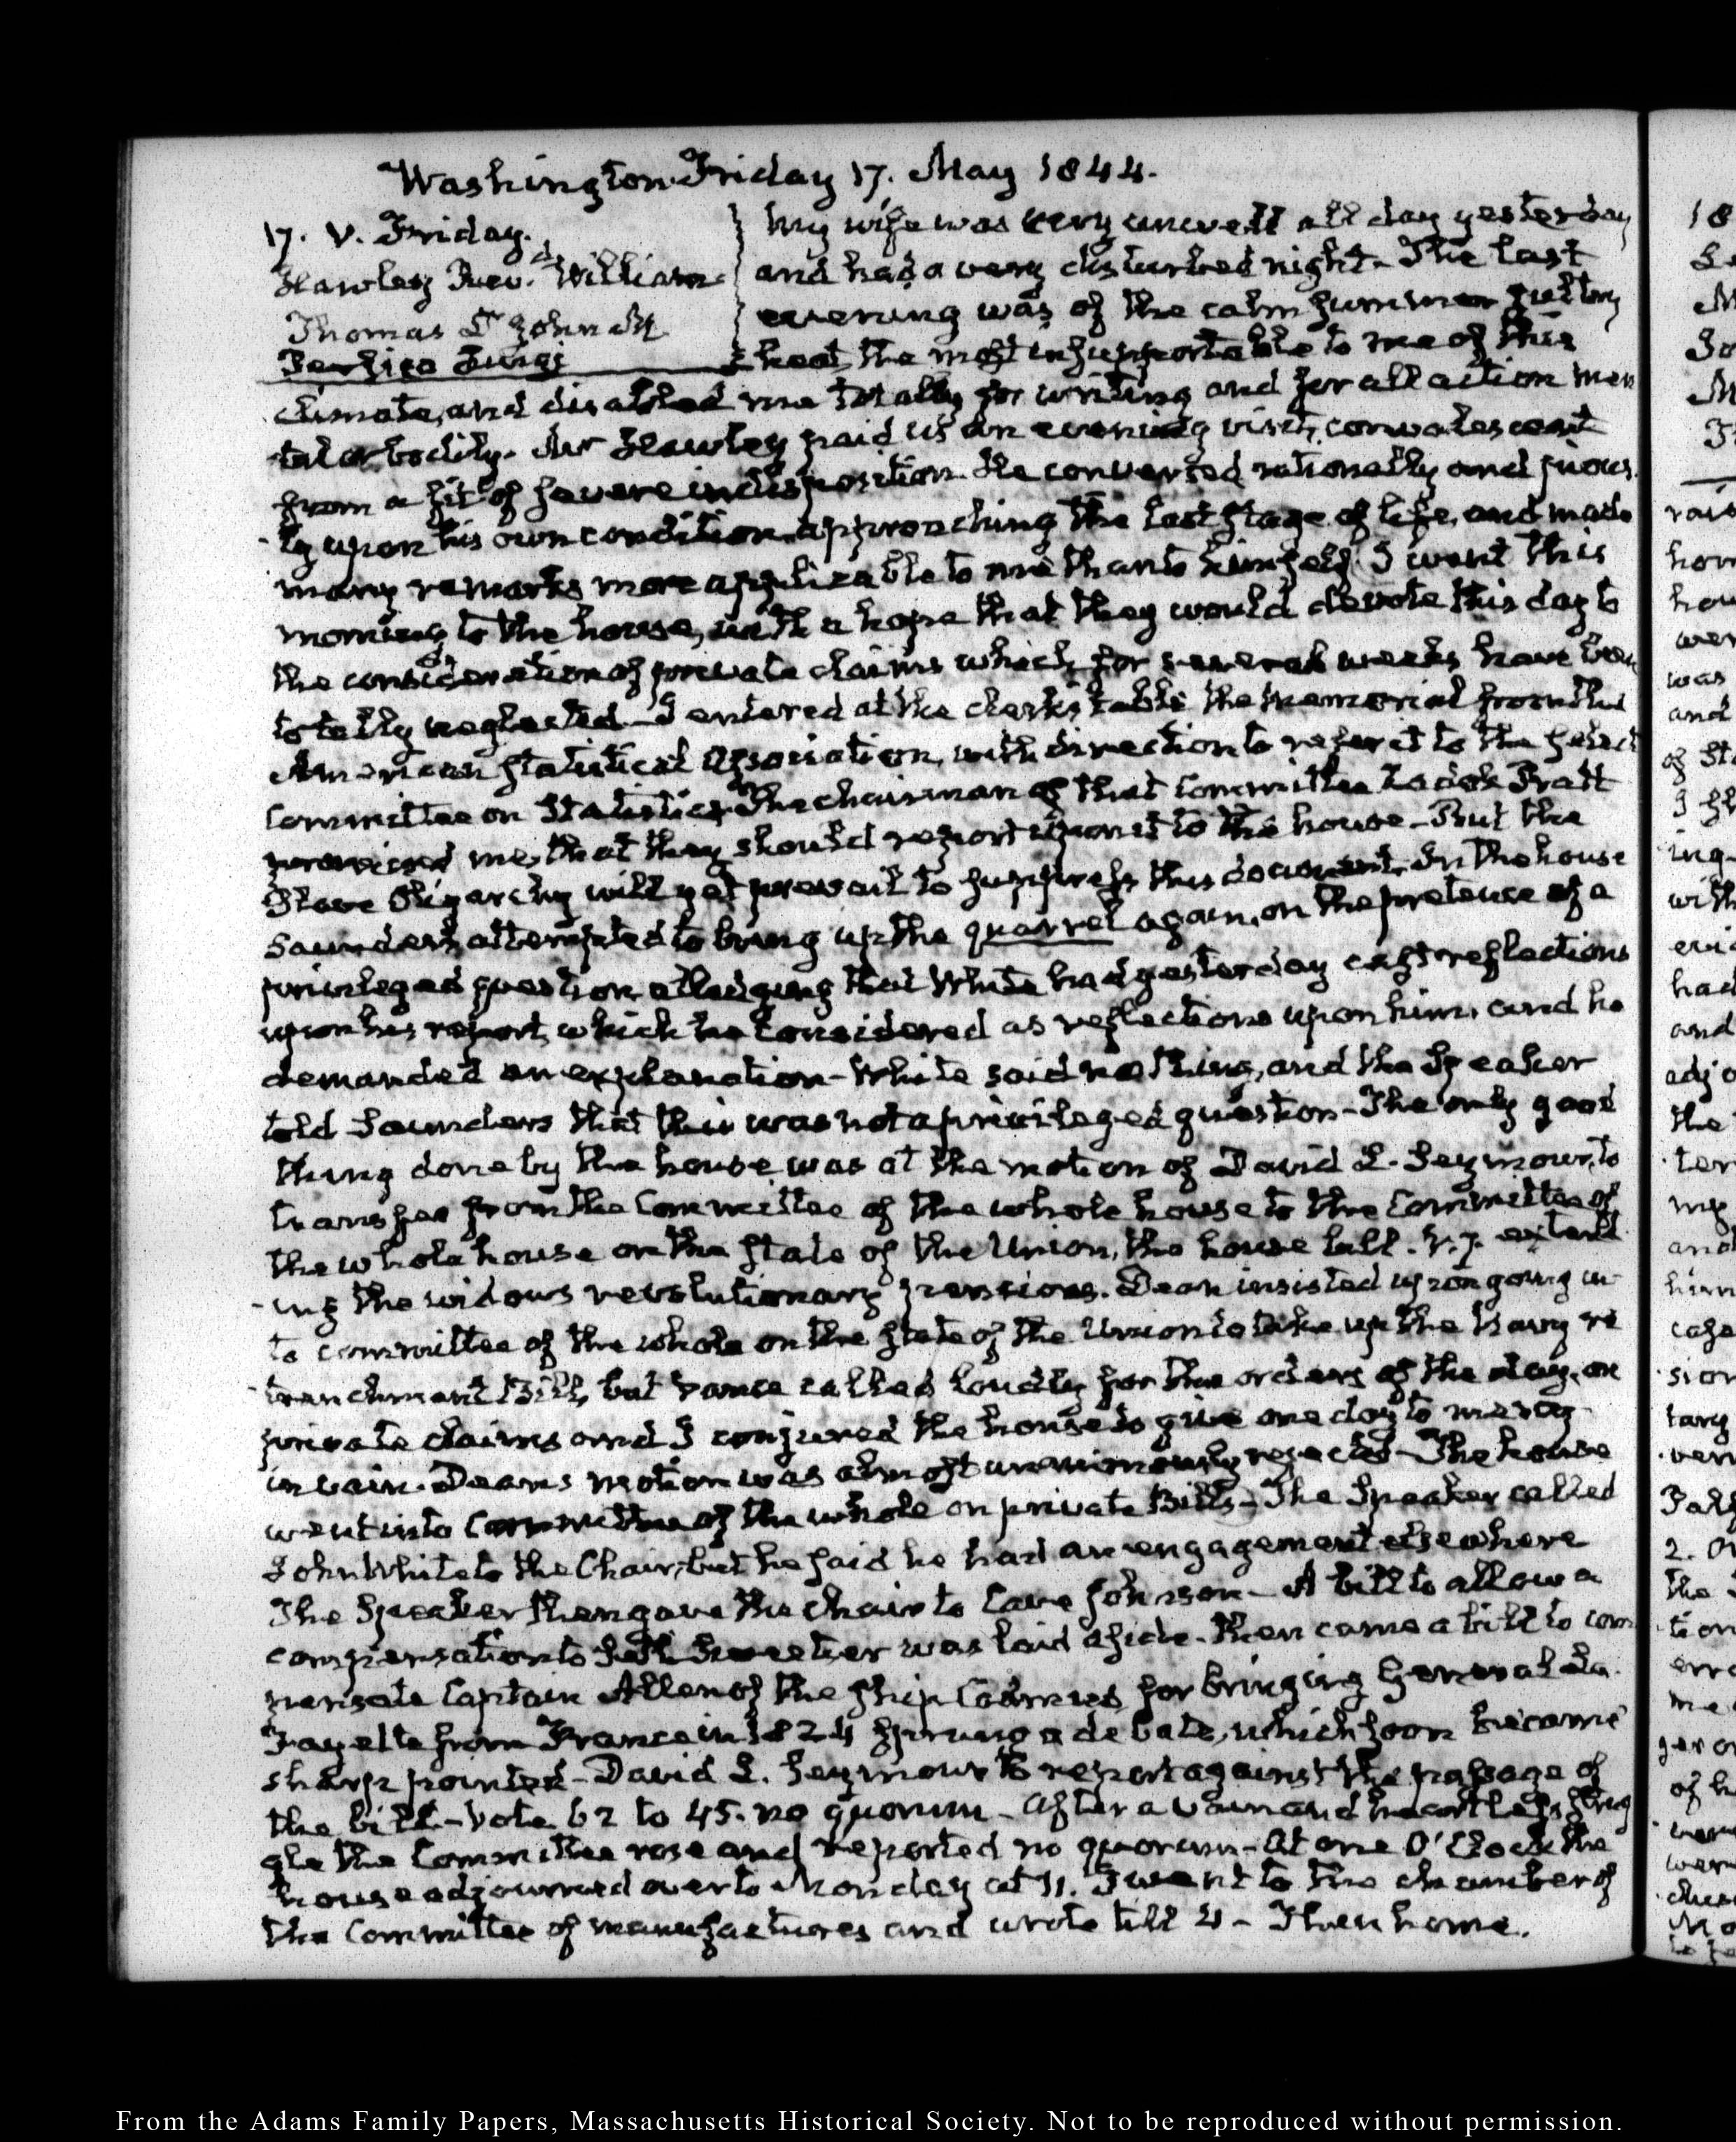 Washington Friday 17. May 1844.
17. V. Friday.
Hawley Revd. William
Thomas Dr John M
Tertico Surgi
My wife was very unwell all day yesterday
and had a very disturbed night. The last
evening was of the calm summer sultry
heat, the most insupportable to me of this
climate, and disabled me totally for writing and for all action men
tal or bodily. Mr Hawley paid us an evening visit, convalescent
from a fit of severe indisposition. He conversed rationally and pious
ly upon his own condition, approaching the last stage of life, and made
many remarks more applicable to me than to himself. I went this
morning to the house, with a hope that they would devote this day to
the consideration of private claims which for several weeks have been
totally neglected. I entered at the clerk's table the memorial from the
American statistical Association, with direction to refer it to the select
Committee on Statistics. The chairman of that Committee Zadok Pratt
promised me, that they should report upon it to the house - But the
Slave Oligarchy will yet prevail to suppress this document. In the house
Saunders attempted to bring up the quarrel again, on the pretence of a
privileged question, alledging that White had yesterday cast reflections
upon his report, which he considered as reflections upon him, and he
demanded an explanation - White said nothing, and the Speaker
told Saunders that this was not a privileged question - The only good
thing done by the house was at the motion of David L. Seymour, to
transfer from the Committee of the whole house to the Committee of
the whole house on the state of the Union, the house bill. extend
-ing the widows revolutionary pensions. Dean insisted upon going in
to committee of the whole on the state of the Union to take up the re
trenchment Bill, but Vance called loudly for the orders of the day, on
private claims and I conjured the house to give one day to mercy
in vain. Dean's motion was almost unanimously rejected - The house
went into Committee of the whole on private Bills - The Speaker called
John White to the Chair, but he said he had an engagement elsewhere
The Speaker then gave the chair to Cave Johnson - A bill to allow a
compensation to was laid aside. Then came a bill to com
pensate Captain Allen of the ship Cadmus, for bringing General La
Fayette from France in 1824 sprung a debate, which soon became
sharp pointed - David L. Seymour to report against the passage of
the bill - vote 62 to 45. no quorum - after a vain and heartless strug
gle the Committee rose and reported no quorum - at one O'Clock the
house adjourned over to Monday at 11. I went to the chamber of
the Committee of manufactures and wrote till 4 - Then home.
From the Adams Family Papers, Massachusetts Historical Society. Not to be reproduced without permission.